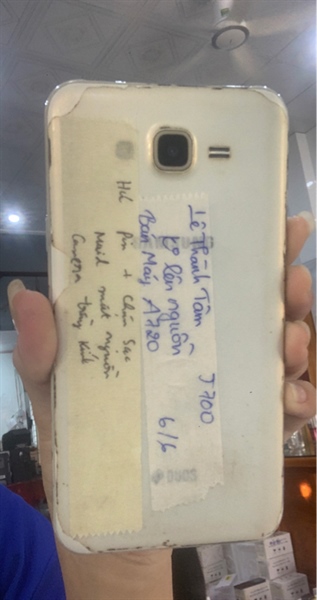 Lê Thành Tâm J700
ko lên nguồn
Bán Máy A720 6/6
Hư Pin + Chân Sạc
Maid mất nguồn
Camera trầy kính
DUOS